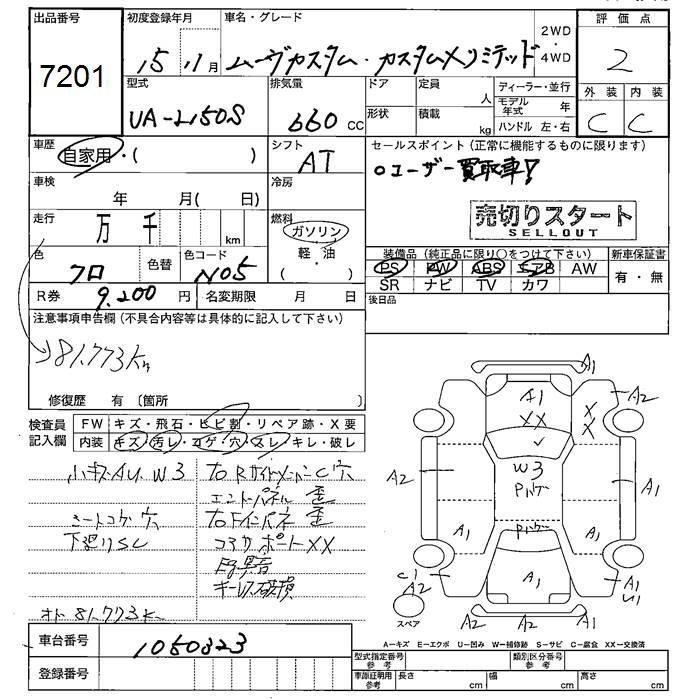 出品番号 初度登録年月 車名・グレード 2WD・4WD 評価点
7201 15 11月 ムーヴカスタム・カスタムXリミテッド 2
型式 排気量 ドア 定員 人 ディーラー・並行 外装 内装
UA-L150S 660cc 形状 積載 kg モデル年式 年 C C
ハンドル 左・右
車歴 自家用・( ) シフト AT セールスポイント(正常に機能するものに限ります)
○ユーザー買取車!
車検 年 月( 日) 冷房
売切りスタート
SELLOUT
走行 万 千 km 燃料 ガソリン
軽・油
( ・ )
色 クロ 色替 色コード N05 装備品(純正品に限り○をつけて下さい) 新車保証書
PS PW ABS エアB AW 有・無
SR ナビ TV カワ
R券 9.200円 名変期限 月 日 後日品
注意事項申告欄(不具合内容等は具体的に記入して下さい)
81.773km
修復歴 有〔箇所 〕
検査員記入欄 FW キズ・飛石・ヒビ割・リペア跡・X要
内装 キズ・汚レ・コゲ・穴・スレ・キレ・破レ
小キズAU W3
シートコゲ穴
下廻りSC
オド 81.773k
右RサイドメンバーC穴
エンドパネル 歪
右Fインパネ 歪
コアサポートXX
キーレス破損
A1
A1 A2
XX X X
W3
Pハゲ
A2 A1
Pハゲ
A1 A1
A1
C1 A2 A1 U1
スペア A2 A2
A-キズ E-エクボ U-凹み W-補修跡 S-サビ C-腐食 XX-交換済
車台番号 1050323 型式指定番号 参考 類別区分番号 参考
登録番号 車庫証明用 参考 長さ cm 幅 cm 高さ cm